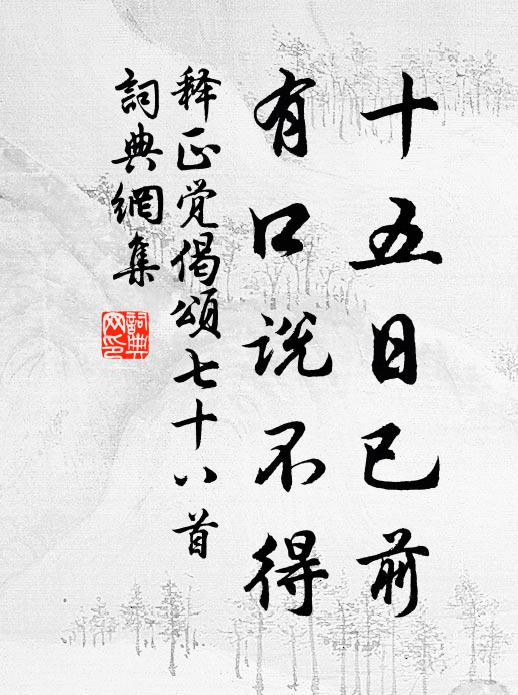 十五日已前
有口说不得
释正觉偈頌七十八首
詞典網集
詞典
网印